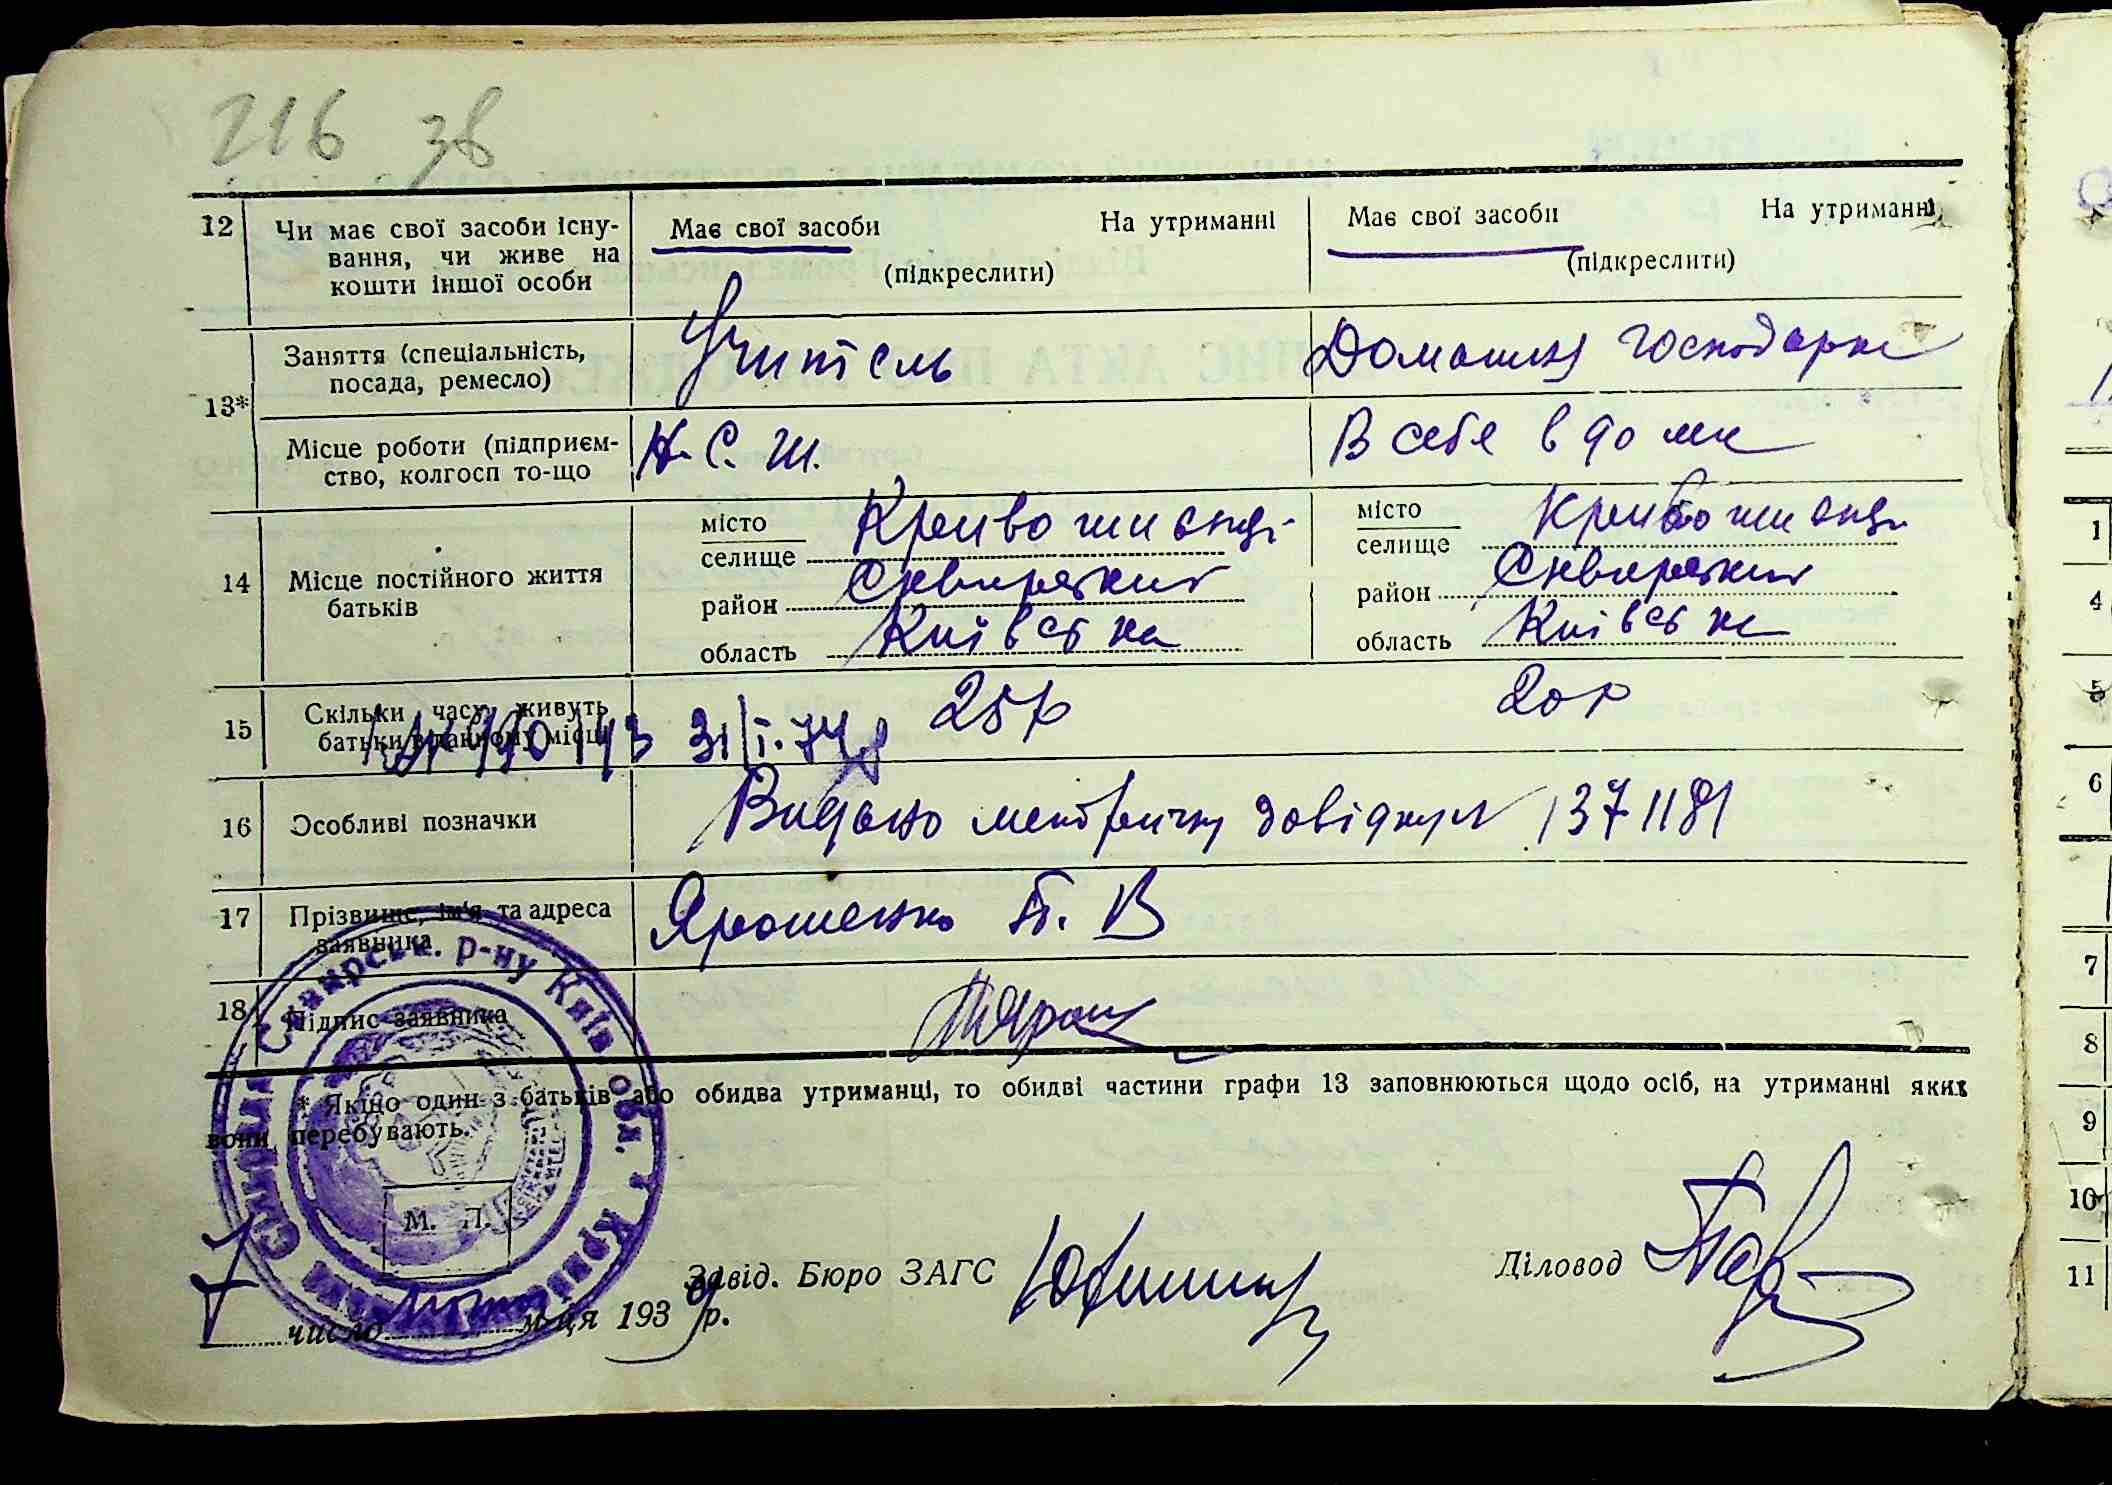 216 зв
12 Чи має свої засоби існу-
вання, чи живе на
кошти іншої особи
Має свої засоби На утриманні
(підкреслити)
Має свої засоби На утриманні
(підкреслити)
13*
Заняття (спеціальність,
посада, ремесло)
Учитель
Домашня господарка
Місце роботи (підприєм-
ство, колгосп то-що
Н.С.Ш.
В себе в доме
14 Місце постійного життя
батьків
місто
селище Кривошиєнці
район Сквирський
область Київська
місто
селище Кривошиєнці
район Сквирський
область Київська
15 Скільки часу живуть
батьки в даному місці
25 р
20 р
31/I.74
16 Особливі позначки
Видано метричну довідку № 1371181
17 Прізвище, ім'я та адреса
заявника
Ярошенко Т. В
18 Підпис заявника
ТЯрош
* Якщо один з батьків або обидва утриманці, то обидві частини графи 13 заповнюються щодо осіб, на утриманні яких
вони перебувають.
Сквирськ. р-ну Київ обл.
М. П.
Завід. Бюро ЗАГС
Діловод
7 число лютого м-ця 1939 р.
1
4
5
6
7
8
9
10
11